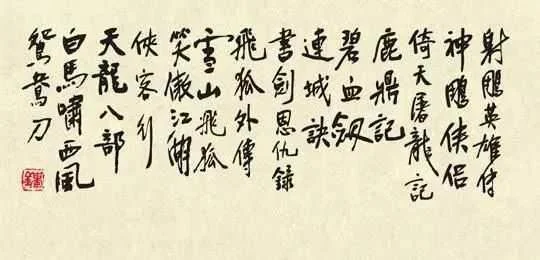 射鵰英雄传
神鵰俠侶
倚天屠龍記
鹿鼎記
碧血劍
連城訣
書劍恩仇錄
飛狐外傳
雪山飛狐
笑傲江湖
俠客行
天龍八部
白馬嘯西風
鴛鴦刀